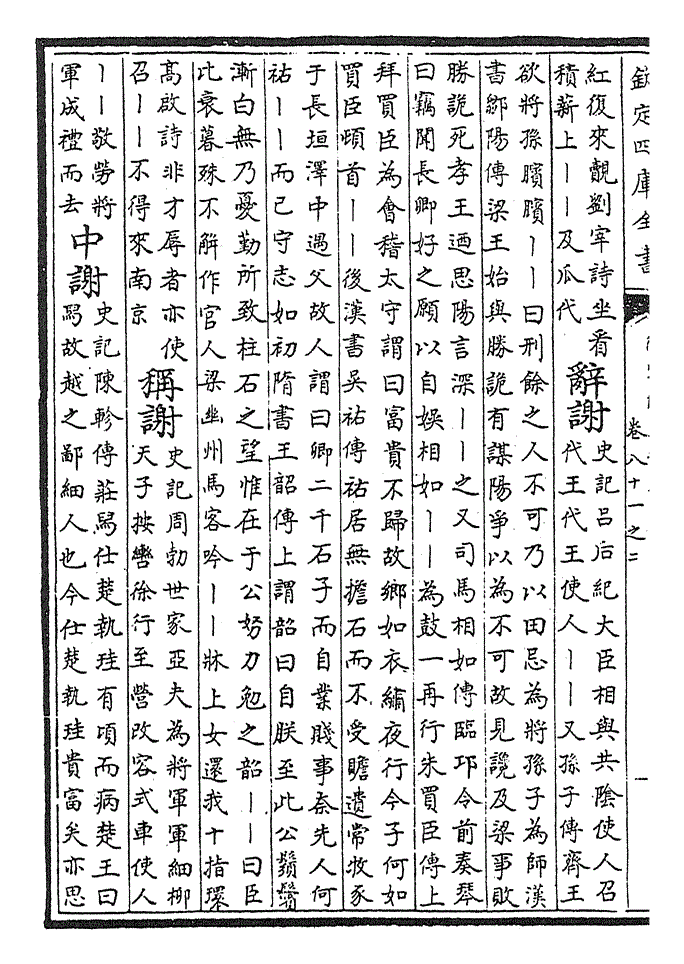 欽定四庫全書
卷八十一之二
一
紅復來觀劉宰詩坐看
積薪上——及瓜代
辭謝
史記呂后紀大臣相與共陰使人召
代王代王使人——又孫子傳齊王
欲將孫臏臏——曰刑餘之人不可乃以田忌為將孫子為師漢
書鄒陽傳梁王始與勝詭有謀陽爭以為不可故見讒及梁事敗
勝詭死孝王迺思陽言深——之又司馬相如傳臨邛令前奏琴
曰竊聞長卿好之願以自娛相如——為鼓一再行朱買臣傳上
拜買臣為會稽太守謂曰富貴不歸故鄉如衣繡夜行今子何如
買臣頓首——後漢書吳祐傳祐居無擔石而不受贍遺常牧豕
于長垣澤中遇父故人謂曰卿二千石子而自業賤事柰先人何
祐——而已守志如初隋書王韶傳上謂韶曰自朕至此公鬚鬢
漸白無乃憂勤所致柱石之望惟在于公努力勉之韶——曰臣
比衰暮殊不解作官人梁幽州馬客吟——牀上女還我十指環
高啟詩非才辱者亦使
召——不得來南京
稱謝
史記周勃世家亞夫為將軍軍細柳
天子按轡徐行至營改容式車使人
——敬勞將
軍成禮而去
中謝
史記陳軫傳莊舄仕楚執珪有頃而病楚王曰
舄故越之鄙細人也今仕楚執珪貴富矣亦思